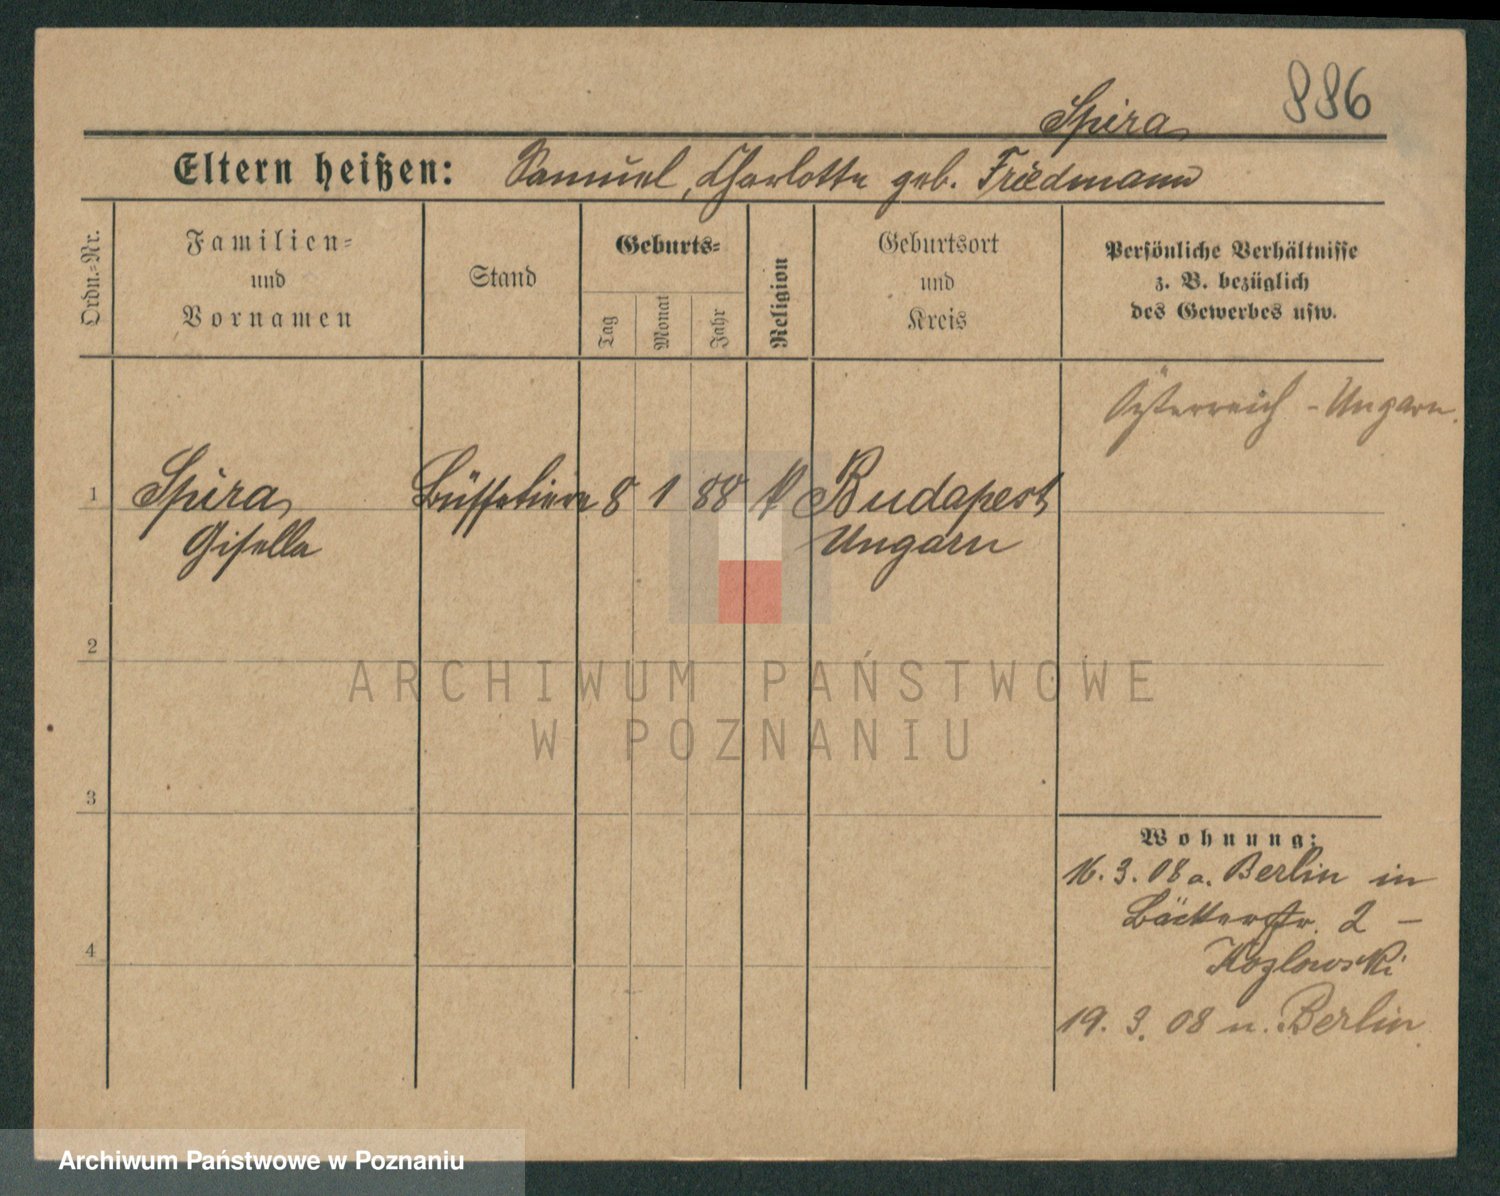 886
Spira
Eltern heißen: Samuel, Charlotte geb. Friedmann
Ordn.-Nr.
Familien-
und
Vornamen
Stand
Geburts-
Tag
Monat
Jahr
Religion
Geburtsort
und
Kreis
Persönliche Verhältnisse
z. B. bezüglich
des Gewerbes usw.
Österreich - Ungarn.
1 Spira Büffetiere 8 1 88 k Budapest
Gisella Ungarn
2
ARCHIWUM PAŃSTWOWE
W POZNANIU
3
Wohnung:
16. 3. 08 a. Berlin in
Bäckerstr. 2 -
Kozlowski
4
19. 3. 08 n. Berlin
Archiwum Państwowe w Poznaniu